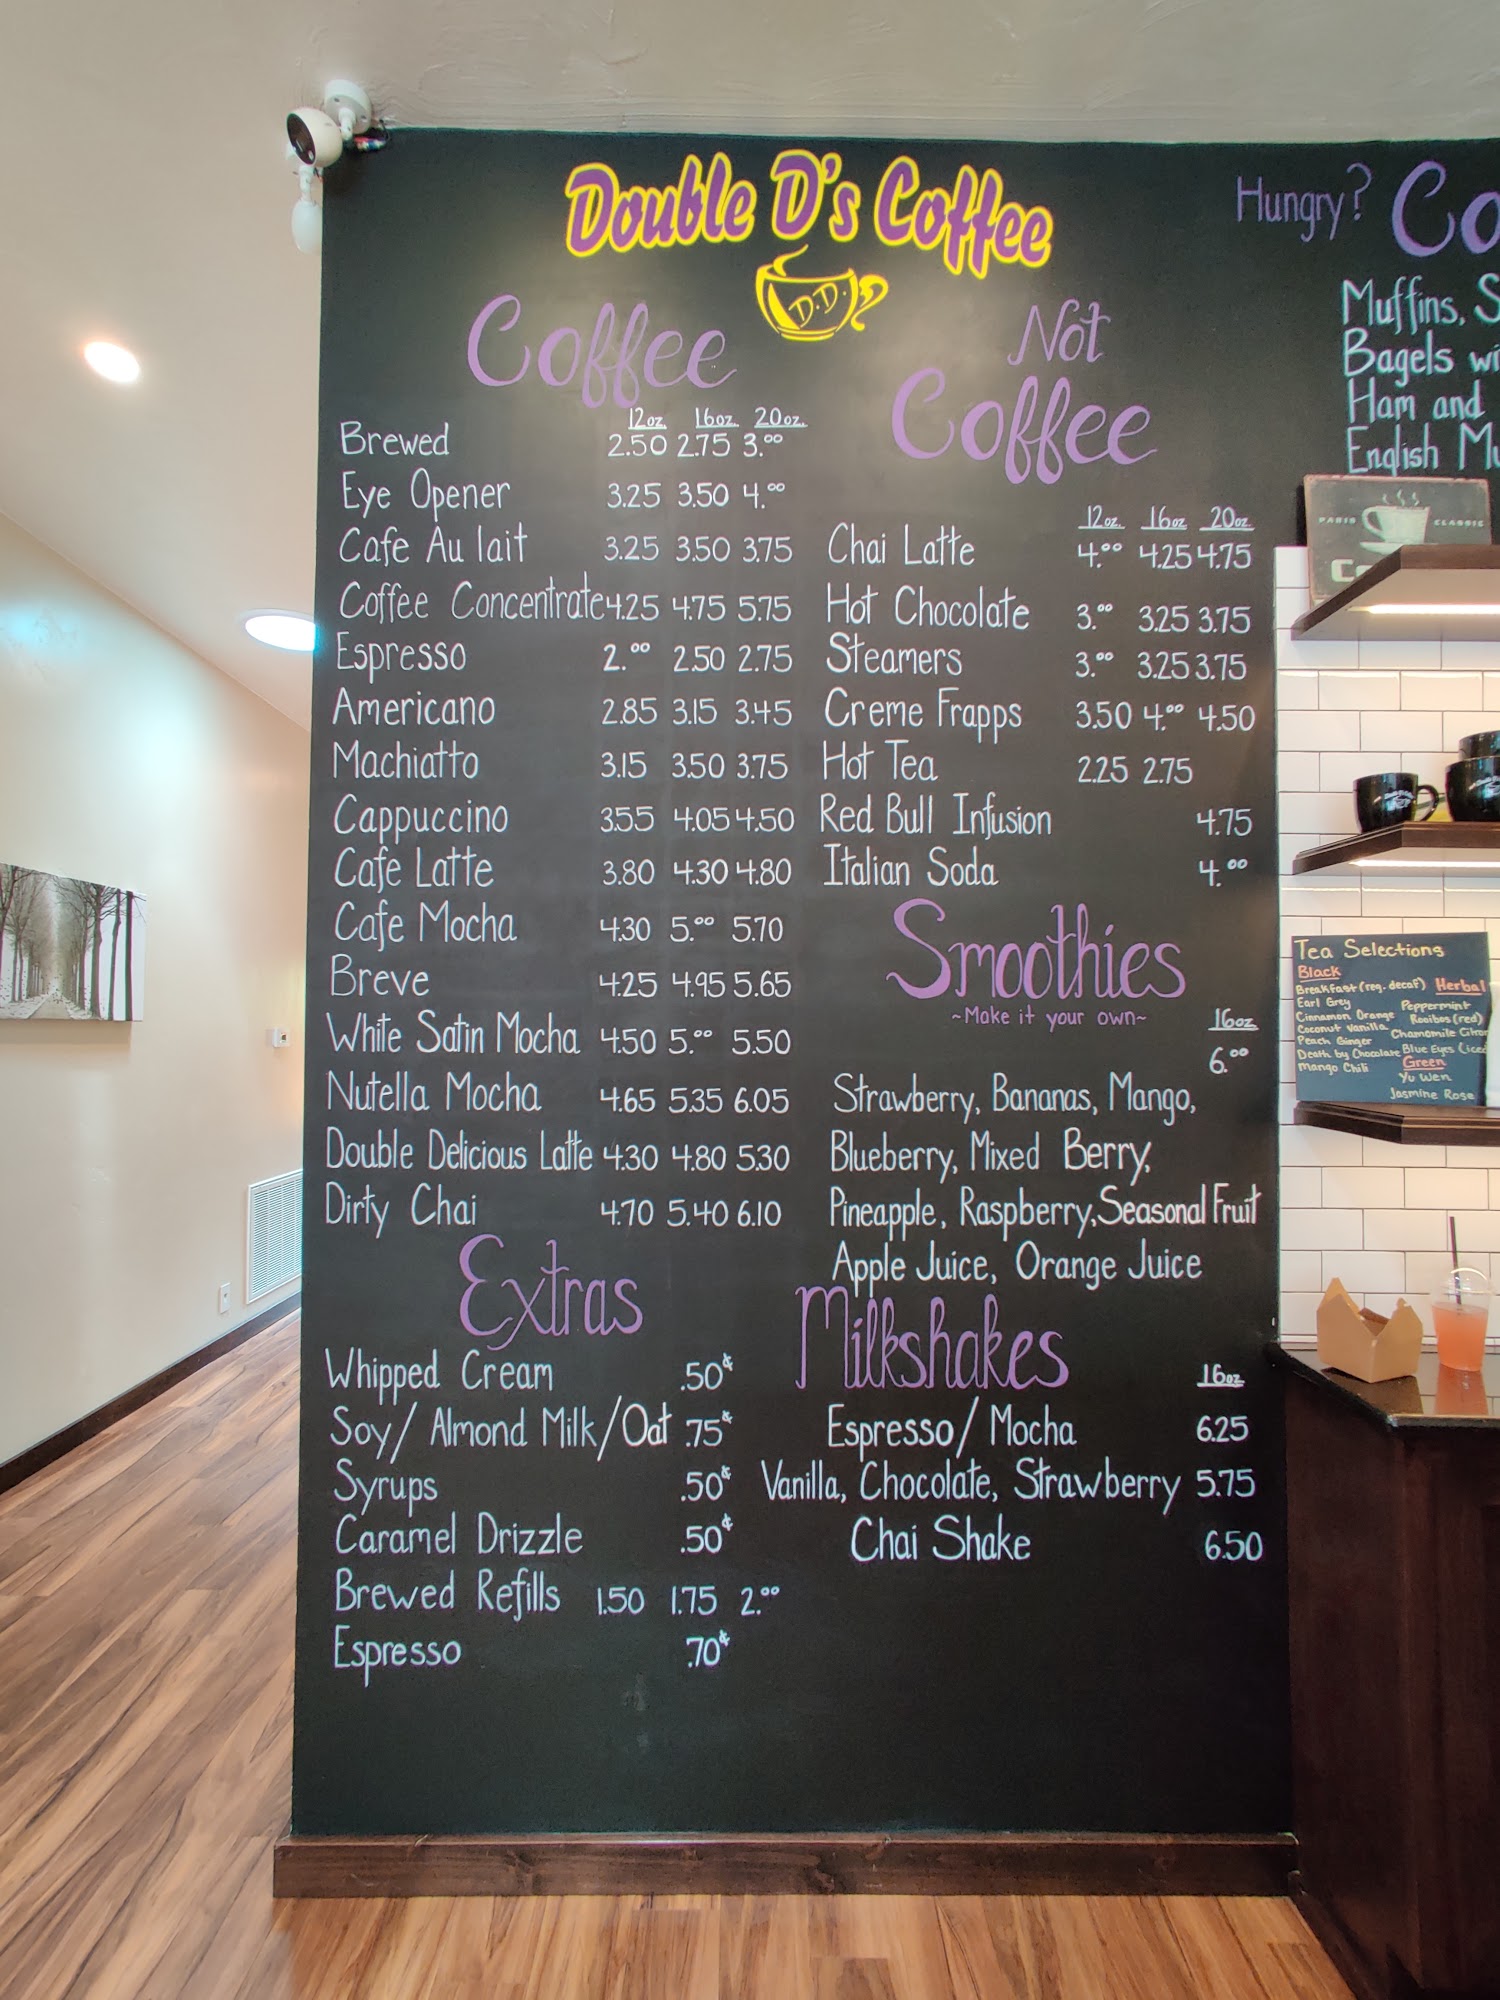 Double D's Coffee
D.D.
Coffee
12oz. 16oz. 20oz.
Brewed 2.50 2.75 3.00
Eye Opener 3.25 3.50 4.00
Cafe Au lait 3.25 3.50 3.75
Coffee Concentrate 4.25 4.75 5.75
Espresso 2.00 2.50 2.75
Americano 2.85 3.15 3.45
Machiatto 3.15 3.50 3.75
Cappuccino 3.55 4.05 4.50
Cafe Latte 3.80 4.30 4.80
Cafe Mocha 4.30 5.00 5.70
Breve 4.25 4.95 5.65
White Satin Mocha 4.50 5.00 5.50
Nutella Mocha 4.65 5.35 6.05
Double Delicious Latte 4.30 4.80 5.30
Dirty Chai 4.70 5.40 6.10
Extras
Whipped Cream .50¢
Soy/ Almond Milk/Oat .75¢
Syrups .50¢
Caramel Drizzle .50¢
Brewed Refills 1.50 1.75 2.00
Espresso .70¢
Not
Coffee
12oz. 16oz 20oz.
Chai Latte 4.00 4.25 4.75
Hot Chocolate 3.00 3.25 3.75
Steamers 3.00 3.25 3.75
Creme Frapps 3.50 4.00 4.50
Hot Tea 2.25 2.75
Red Bull Infusion 4.75
Italian Soda 4.00
Smoothies
~Make it your own~ 16oz
6.00
Strawberry, Bananas, Mango,
Blueberry, Mixed Berry,
Pineapple, Raspberry, Seasonal Fruit
Apple Juice, Orange Juice
Milkshakes
16oz.
Espresso/ Mocha 6.25
Vanilla, Chocolate, Strawberry 5.75
Chai Shake 6.50
Hungry? Co
Muffins, S
Bagels wi
Ham and
English Mu
PARIS CLASSIC
Tea Selections
Black
Breakfast (reg. decaf)
Earl Grey
Cinnamon Orange
Coconut Vanilla
Peach Ginger
Death by Chocolate
Mango Chili
Herbal
Peppermint
Rooibos (red)
Chamomile Citron
Blue Eyes (iced
Green
Yu Wen
Jasmine Rose